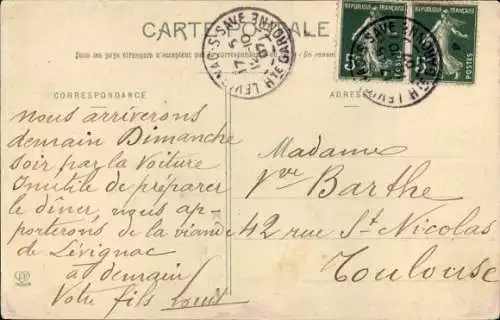 CARTE POSTALE
Dans les pays étrangers n'acceptent pas
CORRESPONDANCE
ADRESSE
RÉPUBLIQUE FRANÇAISE
RÉPUBLIQUE FRANÇAISE
5c
POSTES
LEVIGNAC-S-SAVE
HTE GARONNE
nous arriverons
demain Dimanche
soir par la voiture
Inutile de préparer
le dîner, nous ap-
porterons de la viande
de Lévignac
à demain
Votre fils Louis
Madame
Vve Barthe
42 rue St Nicolas
Toulouse